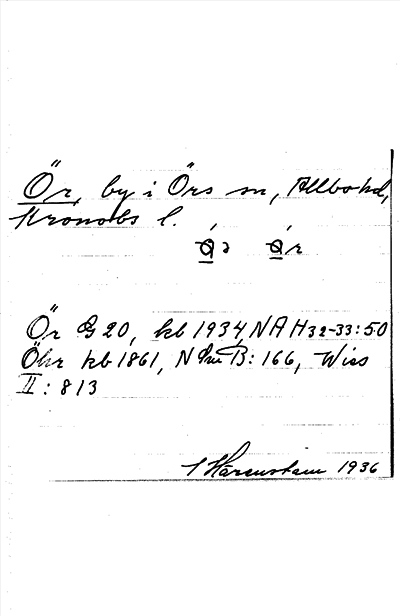 Ör, by i Örs sn, Allbo hd,
Kronobs l.
Ör G 20, kb 1934, NAH 32-33:50
Öhr kb 1861, N B: 166, Wiss
II: 813
Harenstam 1936